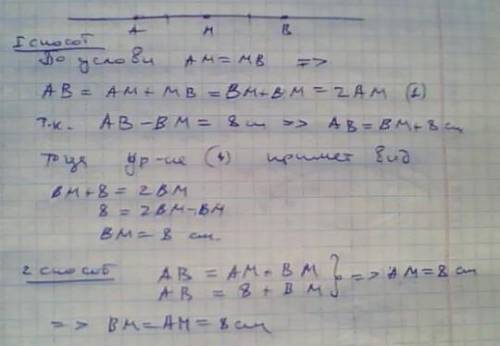 A M B
I способ
По услови AM = MB =>
AB = AM + MB = BM + BM = 2AM (1)
т.к. AB - BM = 8 см => AB = BM + 8 см
тогда ур-ие (1) примет вид
BM + 8 = 2BM
8 = 2BM - BM
BM = 8 см.
2 способ AB = AM + BM
AB = 8 + BM } => AM = 8 см
=> BM = AM = 8 см